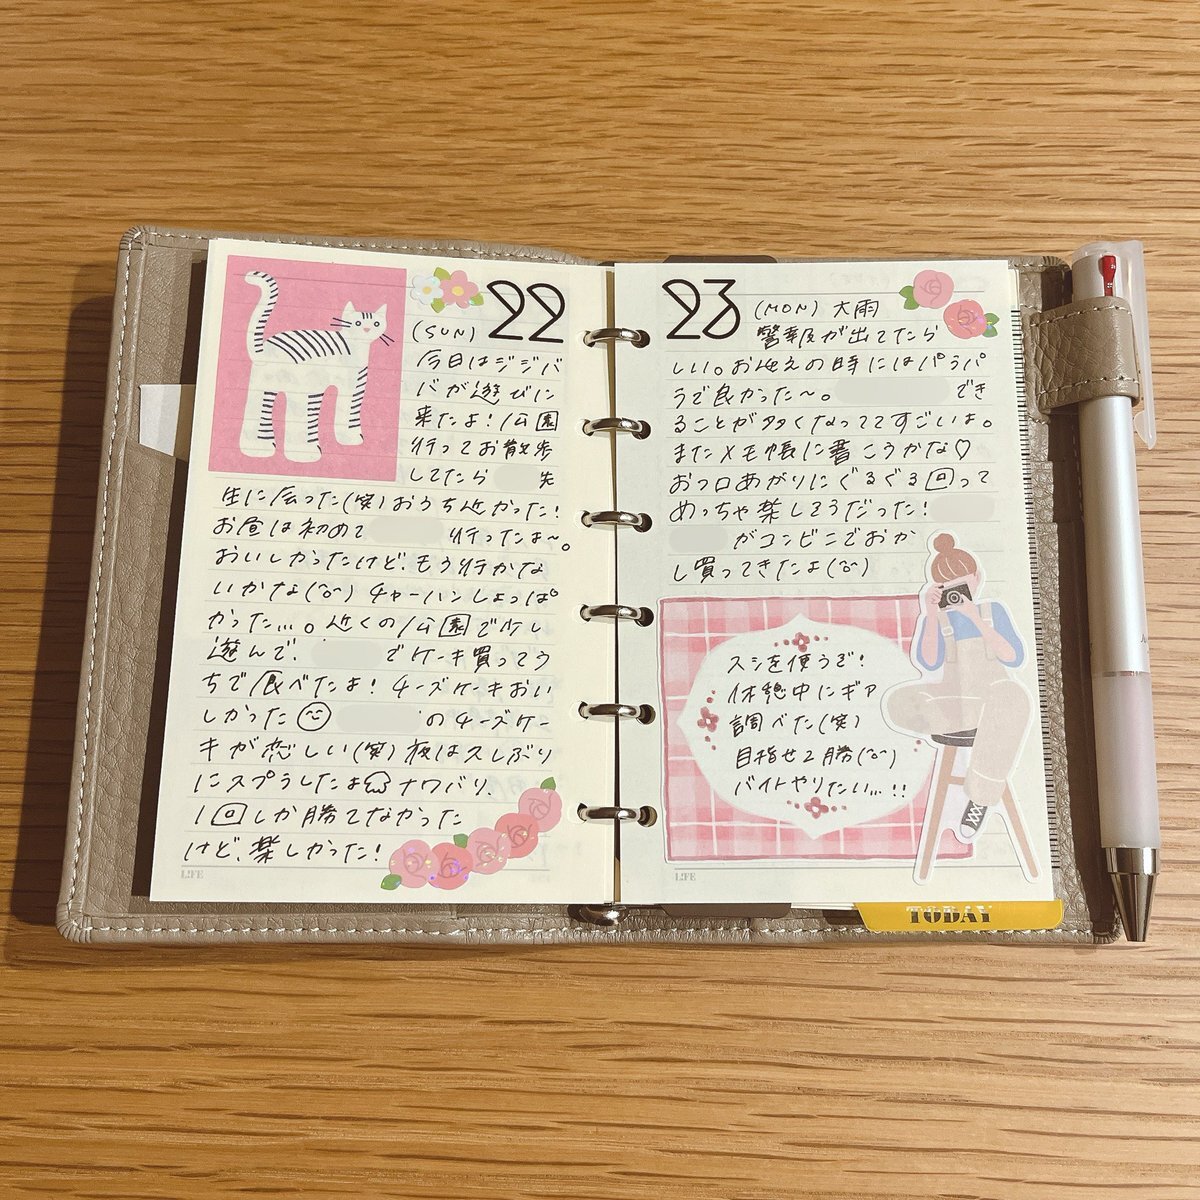 22
(SUN)
今日はジジバ
バが遊びに
来たよ!公園
行ってお散歩
してたら 先
生に会った(笑)おうち近かった!
お昼は初めて 行ったよ〜。
おいしかったけど、もう行かな
いかな(^o^) チャーハンしょっぱ
かった…。近くの公園で少し
遊んで、 でケーキ買ってう
ちで食べたよ!チーズケーキおい
しかった のチーズケー
キが恋しい(笑)夜は久しぶり
にスプラしたよ ナワバリ、
1回しか勝てなかった
けど、楽しかった!
L!FE
23
(MON) 大雨
警報が出てたら
しい。お迎えの時にはパラパ
ラで良かった〜。 でき
ることが多くなっててすごいよ。
またメモ帳に書こうかな♡
おフロあがりにぐるぐる回って
めっちゃ楽しそうだった!
がコンビニでおか
し買ってきたよ(^o^)
スシを使うぞ!
休憩中にギア
調べた(笑)
目指せ2勝(^o^)
バイトやりたい…!!
L!FE
TODAY